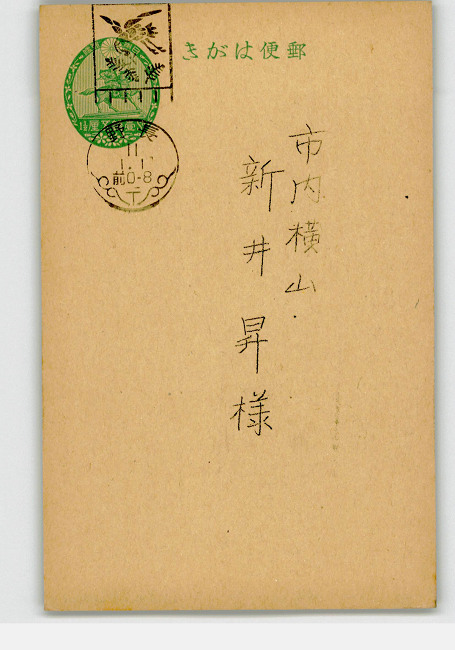 郵便はがき
市内横山
新井昇様
長野
11
1.1
前0-8